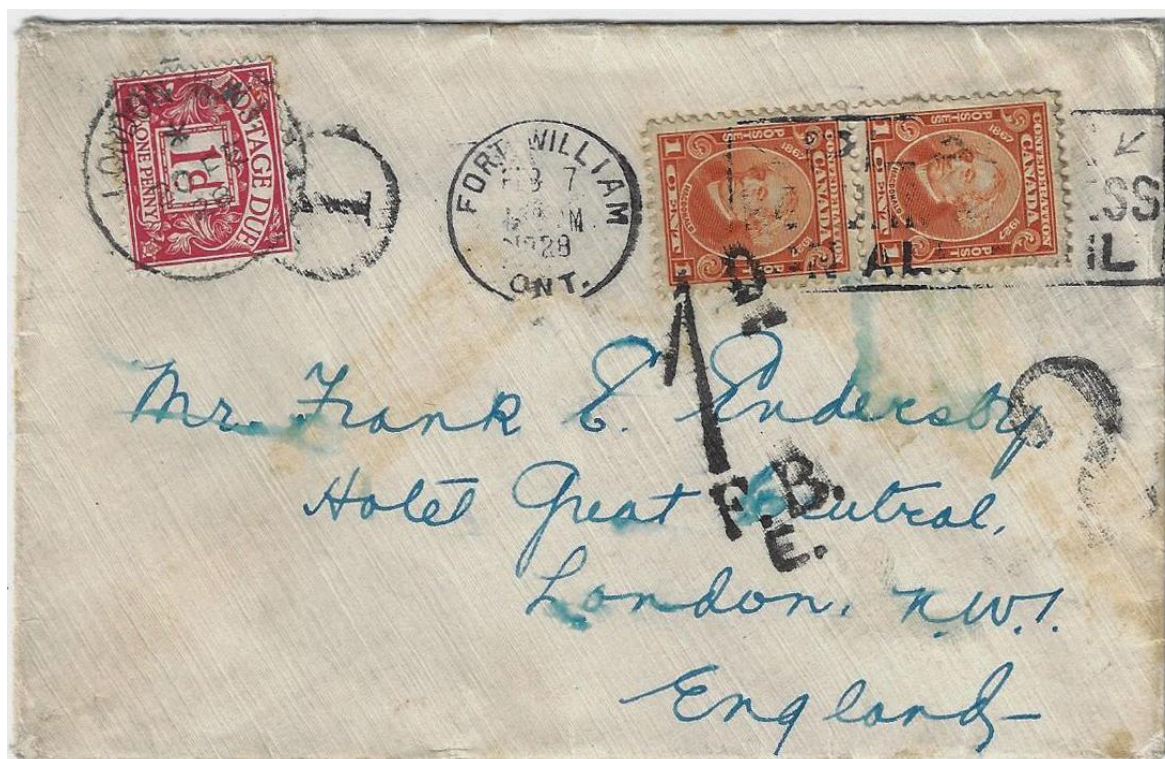 POSTAGE DUE
1d
ONE PENNY
LONDON
T
FORT WILLIAM
FEB 7
1928
ONT.
CONFEDERATION
CANADA
1867
1927
POSTES
POST
1 CENT 1
CONFEDERATION
CANADA
1867
1927
POSTES
POST
1 CENT 1
ESS
AL
IL
1 D
F.B.
E.
?
Mr. Frank E. Endersby
Hotel Great Central,
London, N.W.1.
England